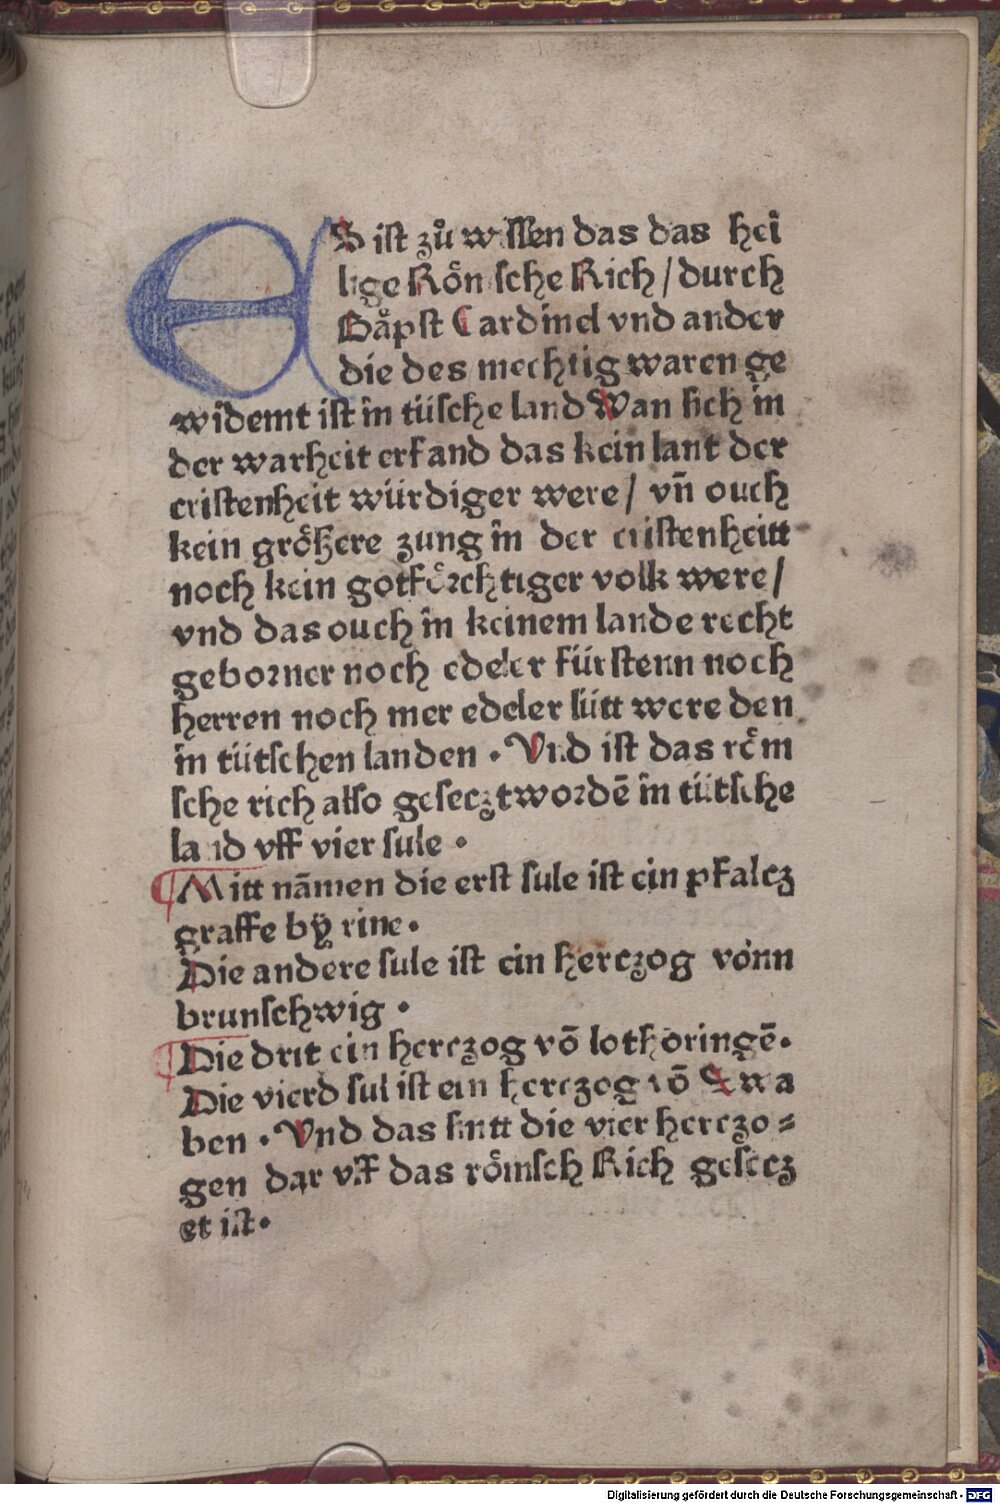 ES ist zů wissen das das hei
lige Rön sche Rich / durch
Båpst Cardinel vnd ander
die des mechtig waren ge
widemt ist in tüsche land Wan sich im
der warheit erfand das kein lant der
cristenheit würdiger were / vn̄ ouch
kein größere zung in der cristenheitt
noch kein gotförchtiger volk were /
vnd das ouch in keinem lande recht
geborner noch edeler fürstenn noch
herren noch mer edeler lütt were den
in tütschen landen · Vnd ist das röm
sche rich also geseczt wordē in tütsche
land vff vier sule ·
¶ Mitt nāmen die erst sule ist ein pfalcz
graffe bÿ rine ·
Die andere sule ist ein herczog vonn
brunschwig ·
¶ Die drit ein herczog vō lothoringē ·
Die vierd sul ist ein herczog vō Swa
ben · Vnd das sintt die vier herczo⸗
gen dar vff das römsch Rich gesecz
et ist ·
Digitalisierung gefördert durch die Deutsche Forschungsgemeinschaft - DFG